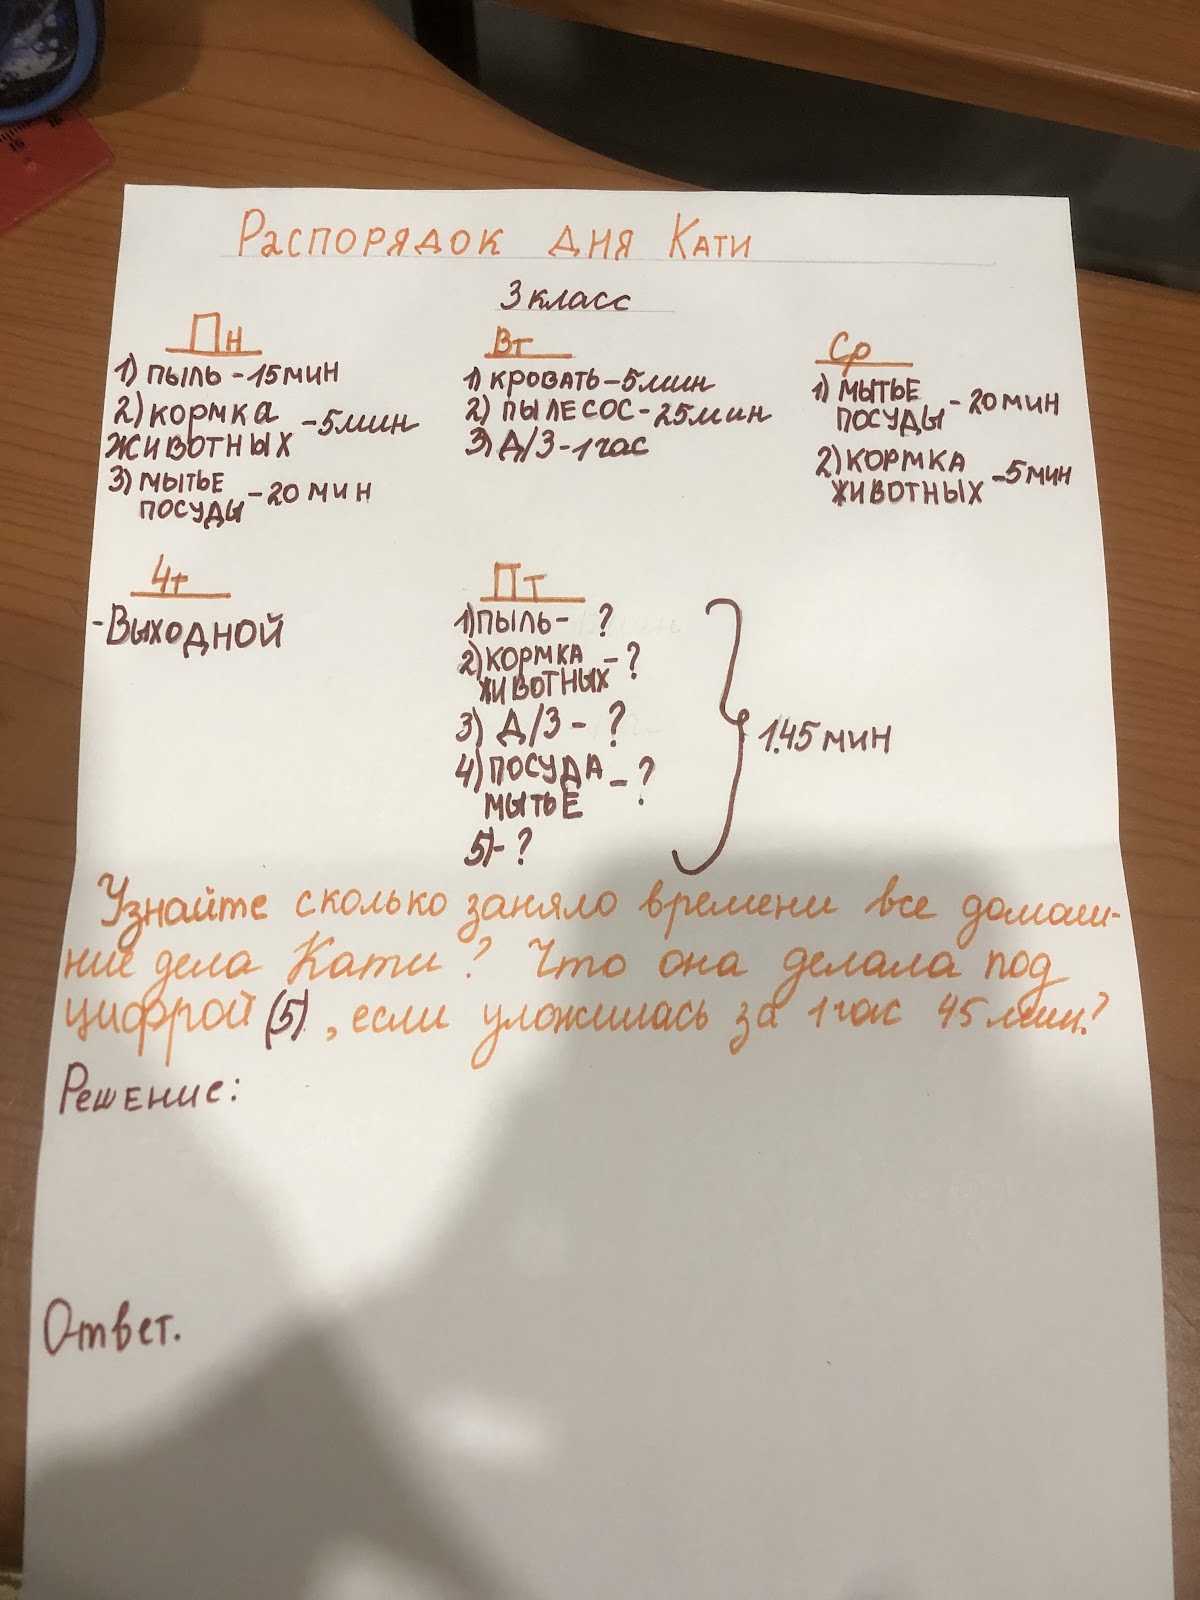 Распорядок дня Кати
3 класс
Пн
1) пыль - 15 мин
2) кормка
животных - 5 мин
3) мытье
посуды - 20 мин
Вт
1) кровать - 5 мин
2) пылесос - 25 мин
3) Д/З - 1 час
Ср
1) мытье
посуды - 20 мин
2) кормка
животных - 5 мин
Чт
- Выходной
Пт
1) пыль - ?
2) кормка
животных - ?
3) Д/З - ?
4) посуда
мытьё - ?
5) - ?
1.45 мин
Узнайте сколько заняло времени все домаш-
ние дела Кати? Что она делала под
цифрой (5), если уложилась за 1 час 45 мин.?
Решение:
Ответ.
16
15